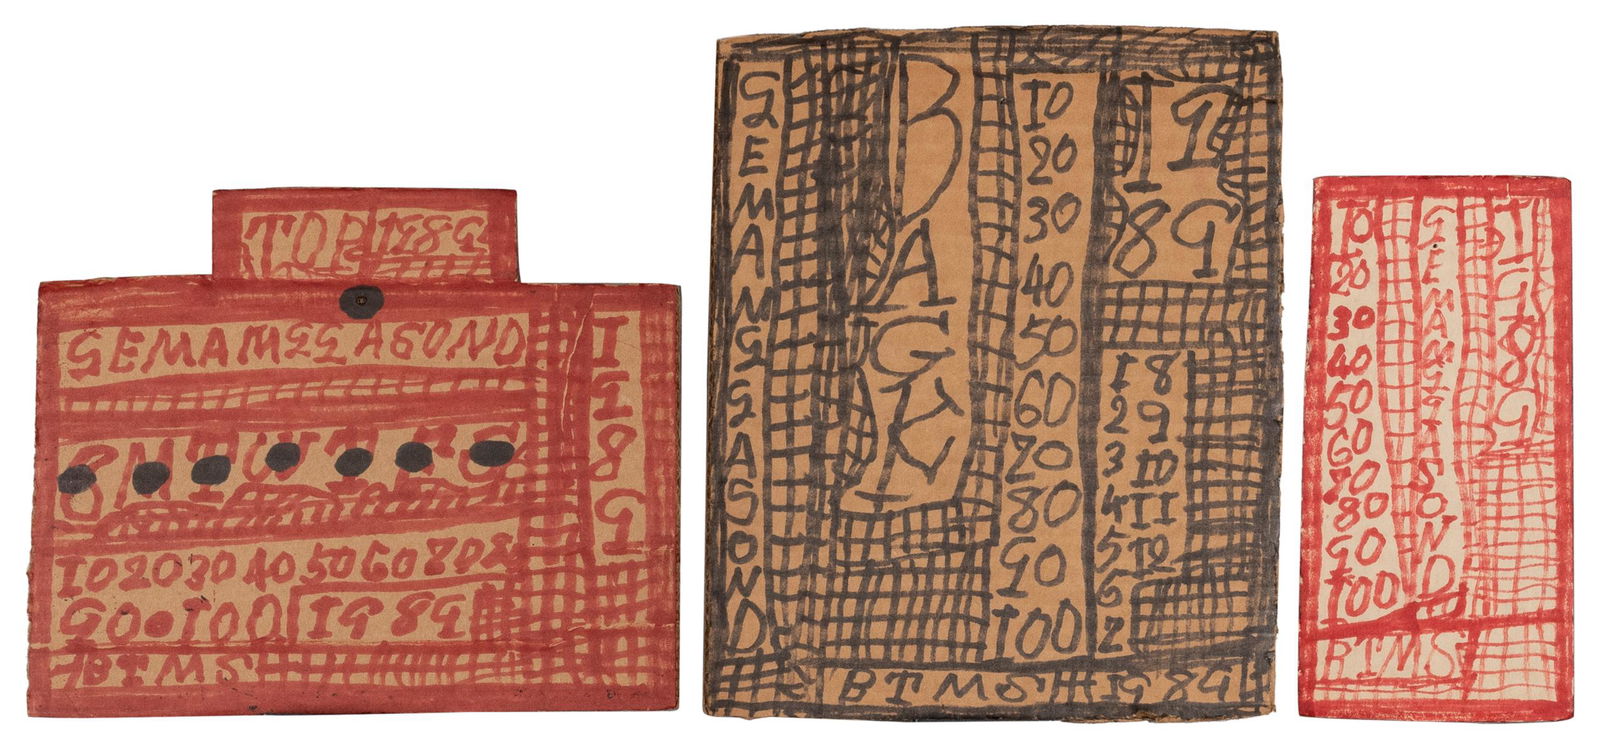 TOP 1989
GEMAMGGASOND
1989
10 20 30 40 50 60 70 80
90 100 1989
BTMS
GEMAMGGASOND
BACK
10
20
30
40
50
60
70
80
90
100
19
89
1 8
2 9
3 10
4 11
5 12
6
7
BTMS 1989
10
20
30
40
50
60
70
80
90
100
GEMAMGGASOND
1989
BTMS